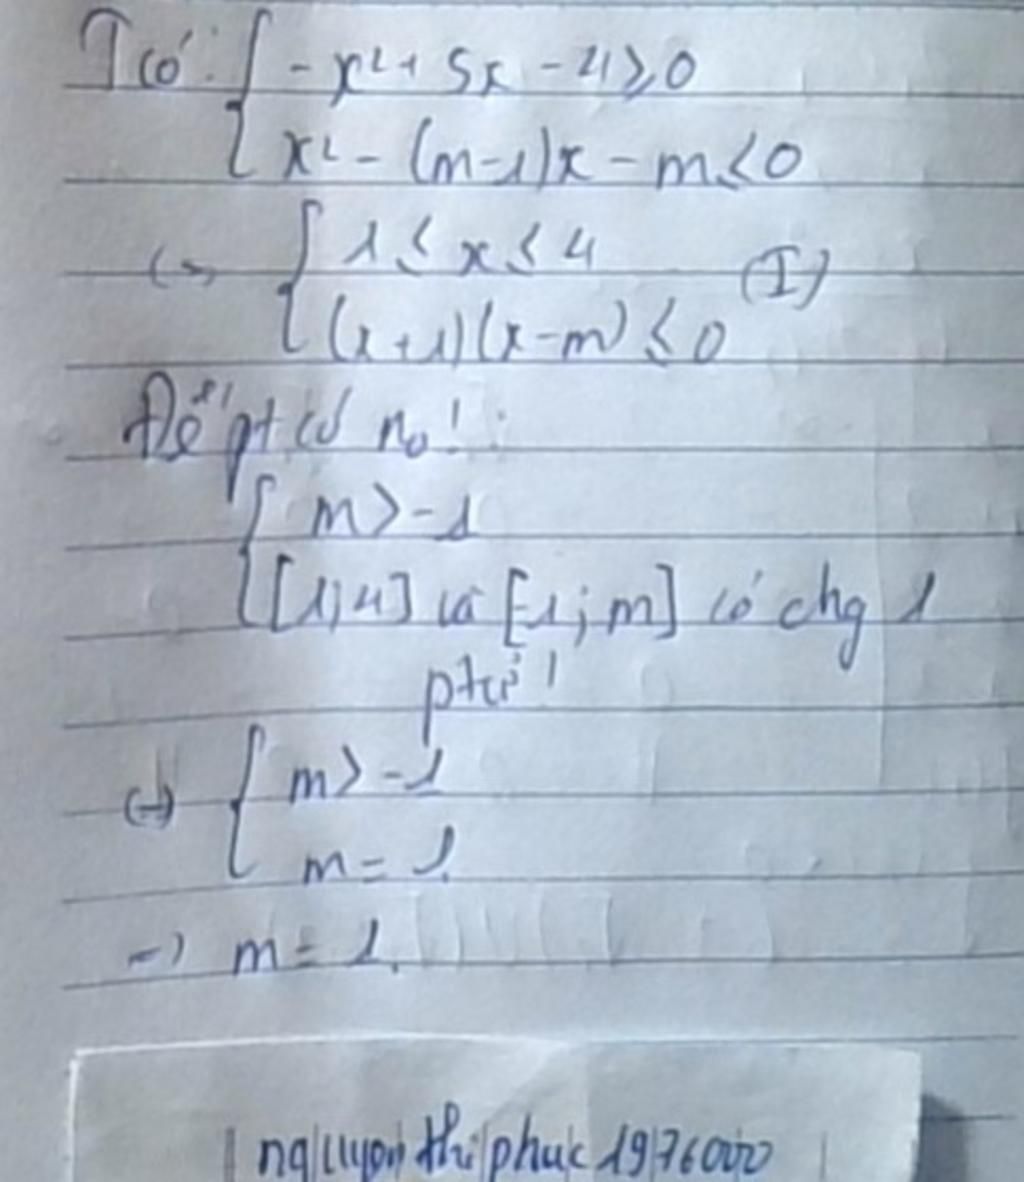 T có: { -x² + 5x - 4 ≥ 0
x² - (m-1)x - m ≤ 0
(=) { 1 ≤ x ≤ 4 (I)
(x+1)(x-m) ≤ 0
Để pt có n₀! :
{ m > -1
[1;4] và [-1; m] có chg 1
ptử!
(=) { m > -1
m = 1.
=) m = 1.
nguyen thi phuc 1976000